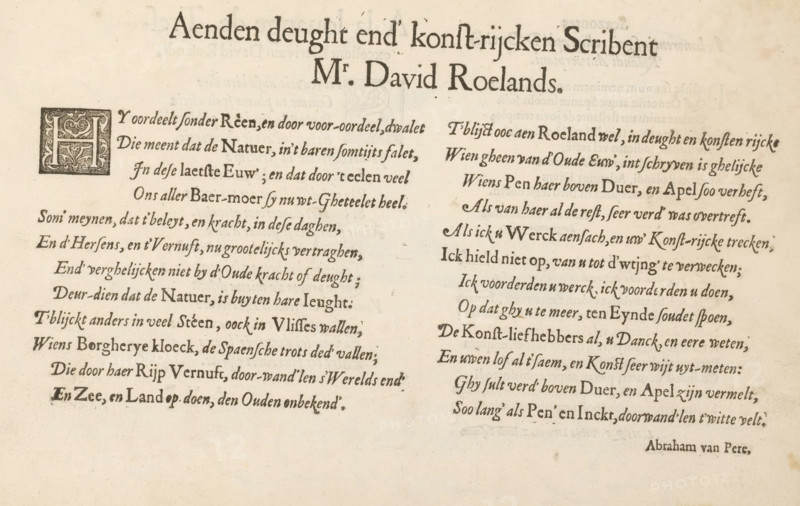 Aenden deught end' konst-rijcken Scribent
Mr. David Roelands.
HY oordeelt sonder Rêen, en door voor-oordeel, dwalet
Die meent dat de Natuer, in't baren somtijts falet,
In dese laetste Euw'; en dat door 't teelen veel
Ons aller Baer-moer sy nu wt-Gheteelet heel.
Som' meynen, dat t'beleyt, en kracht, in dese daghen,
En d'Hersens, en t'Vernuft, nu grootelijcks vertraghen,
End' verghelijcken niet by d'Oude kracht of deught;
Deur-dien dat de Natuer, is buyten hare Ieught.
T'blijckt anders in veel Stêen, oock in Vlisses wallen,
Wiens Borgherye kloeck, de Spaensche trots ded' vallen;
Die door haer Rijp Vernuft, door-wand'len s'Werelds end'
En Zee, en Land op doen, den Ouden onbekend'.
T'blijct ooc aen Roeland wel, in deught en konsten rijcke
Wien gheen van d'Oude Euw', int schryven is ghelijcke
Wiens Pen haer boven Duer, en Apel soo verheft,
Als van haer al de rest, seer verd' was overtreft.
Als ick u Werck aensach, en uw' Konst-rijcke trecken,
Ick hield niet op, van u tot d'wtjng' te verwecken;
Ick voorderden u werck, ick voorderden u doen,
Op dat ghy u te meer, ten Eynde soudet spoen,
De Konst-liefhebbers al, u Danck, en eere weten,
En uwen lof al t'saem, en Konst seer wijt uyt-meten:
Ghy sult verd' boven Duer, en Apel zijn vermelt,
Soo lang' als Pen' en Inckt, doorwand'len t'witte velt.
Abraham van Pere.